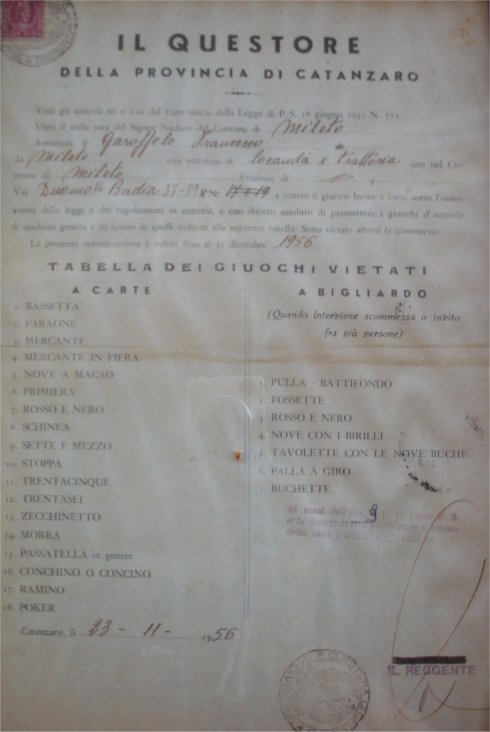 IL QUESTORE
DELLA PROVINCIA DI CATANZARO
Visti gli articoli 86 e 110 del testo unico della Legge di P. S. 18 giugno 1931 N. 773.
Visto il nulla osta del Signor Sindaco del Comune di Mileto
Autorizza Garoffolo Francesco di
da Mileto con esercizio di locanda e trattoria sito nel Co-
mune di Mileto Frazione di
Via Duomo Badia 37-39 N. 17 e 19 a tenere il giuoco lecito a carte sotto l'osser-
vanza delle leggi e dei regolamenti in materia, e con divieto assoluto di permettere i giuochi d'azzardo
di qualsiasi genere e in specie di quelli indicati alla seguente tabella. Sono vietate altresì le scommesse.
La presente autorizzazione è valida fino al 31 dicembre 1956
TABELLA DEI GIUOCHI VIETATI
A CARTE
1. BASSETTA
2. FARAONE
3. MERCANTE
4. MERCANTE IN FIERA
5. NOVE A MACAO
6. PRIMIERA
7. ROSSO E NERO
8. SCHINEA
9. SETTE E MEZZO
10. STOPPA
11. TRENTACINQUE
12. TRENTASEI
13. ZECCHINETTO
14. MORRA
15. PASSATELLA in genere
16. CONCHINO O CONCINO
17. RAMINO
18. POKER
A BIGLIARDO
(Quando interviene scommessa o invito
fra più persone)
1. PULLA - BATTIFONDO
2. FOSSETTE
3. ROSSO E NERO
4. NOVE CON I BIRILLI
5. TAVOLETTE CON LE NOVE BUCHE
6. PALLA A GIRO
7. BUCHETTE
Ai sensi dell'Art. 9 P. S.
si fa divieto di giuoco
delle carte i
Catanzaro, li 23 - 11 - 1956
IL REGGENTE